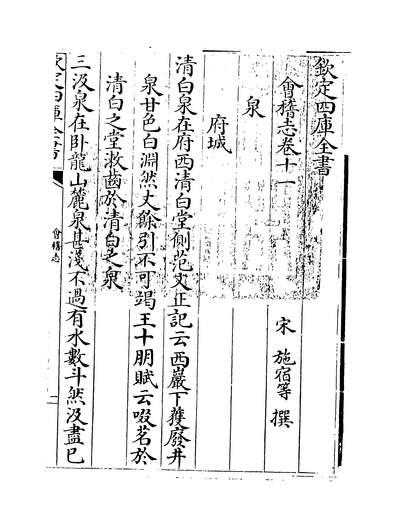 欽定四庫全書
會稽志卷十一
宋 施宿等 撰
泉
府城
清白泉在府西清白堂側范文正記云西巖下獲廢井
泉甘色白淵然丈餘引不可竭王十朋賦云啜茗於
清白之堂漱齒於清白之泉
三汲泉在卧龍山麓泉甚淺不過有水數斗然汲盡已
欽定四庫全書
會稽志
一